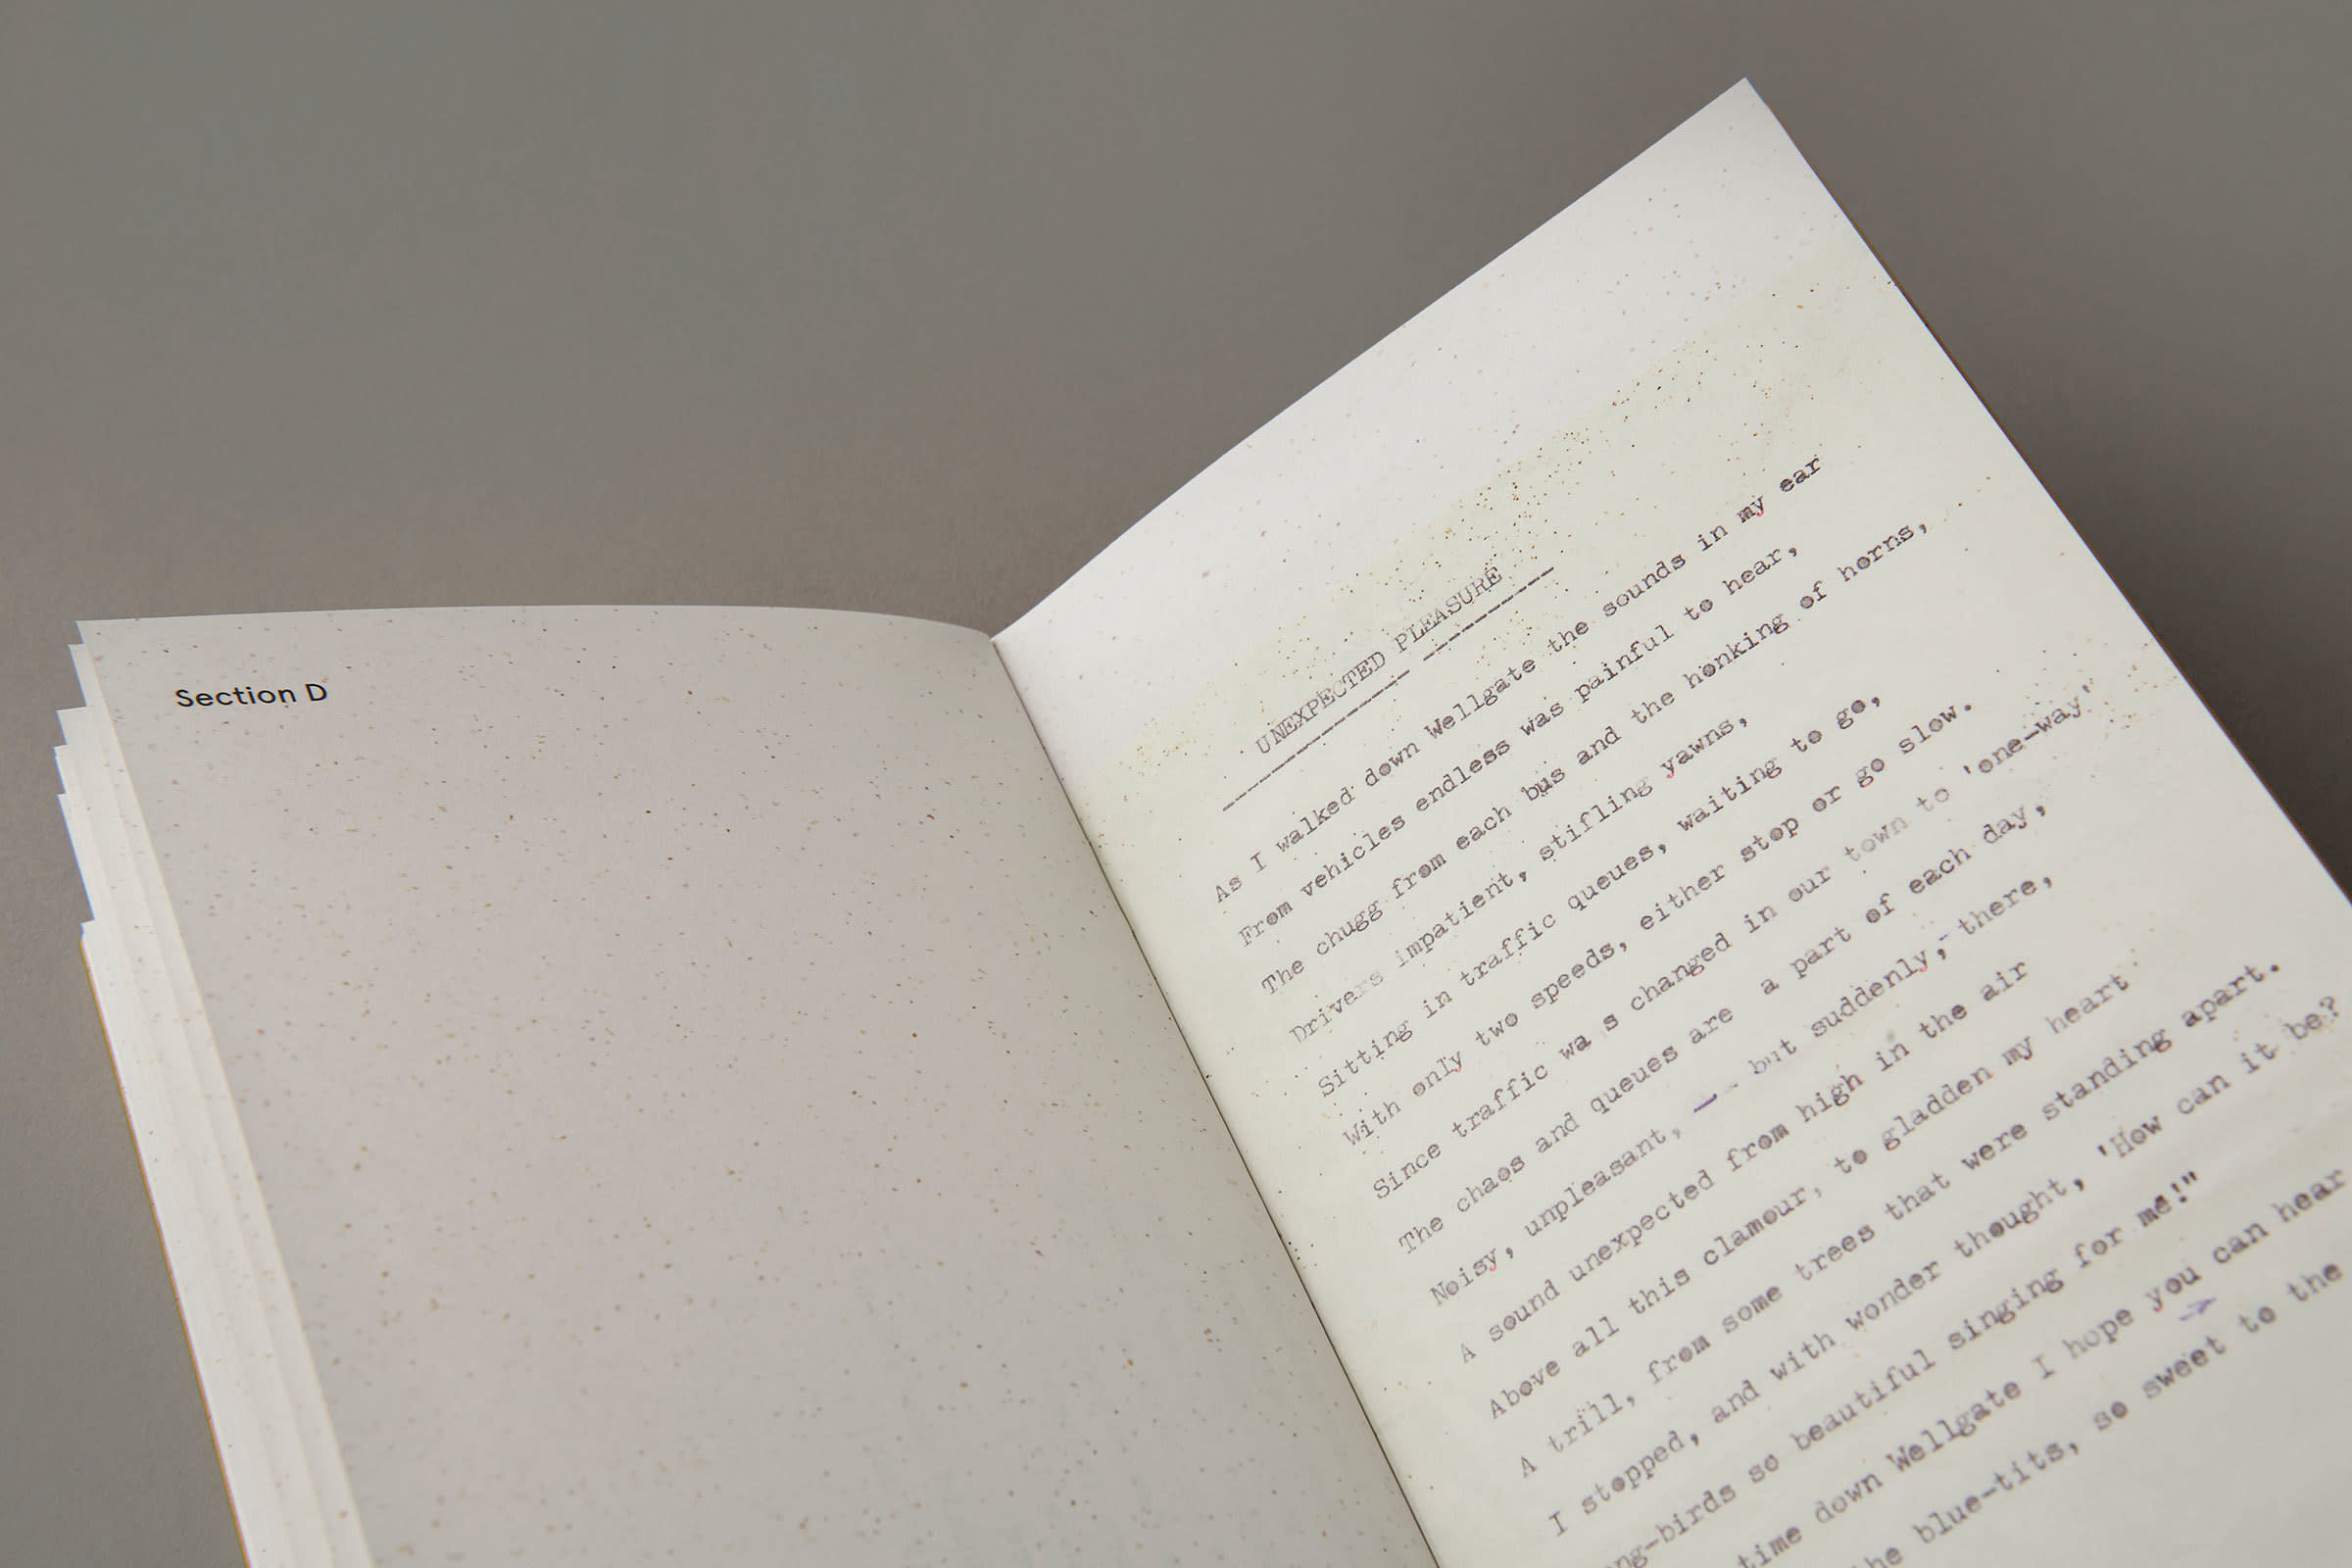 Section D
UNEXPECTED PLEASURE
As I walked down Wellgate the sounds in my ear
From vehicles endless was painful to hear,
The chugg from each bus and the honking of horns,
Drivers impatient, stifling yawns,
Sitting in traffic queues, waiting to go,
With only two speeds, either stop or go slow.
Since traffic wa s changed in our town to 'one-way'
The chaos and queues are  a part of each day,
Noisy, unpleasant, — - but suddenly,- there,
A sound unexpected from high in the air
Above all this clamour, to gladden my heart
A trill, from some trees that were standing apart.
I stopped, and with wonder thought, 'How can it be?
ng-birds so beautiful singing for me!"
time down Wellgate I hope you can hear
the blue-tits, so sweet to the